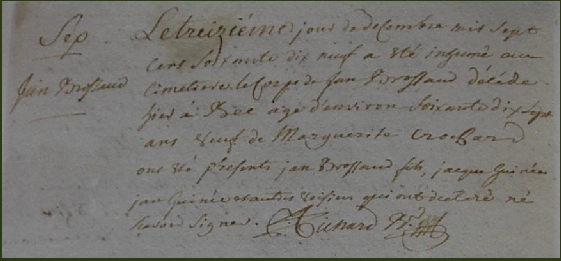 Sep.
Jan Brossaud
Le treizieme jour de decembre mis sept
cens soixante dix neuf a été inhumé au
cimetiere le corps de Jan Brossaud décédé
hier à Bec age d'environ soixante dix sept
ans veuf de Marguerite Crochard
ont été présents jan Brossaud fils, jacque Guinée
jan Guinée et autres voisins qui ont declaré ne
savoir signer.